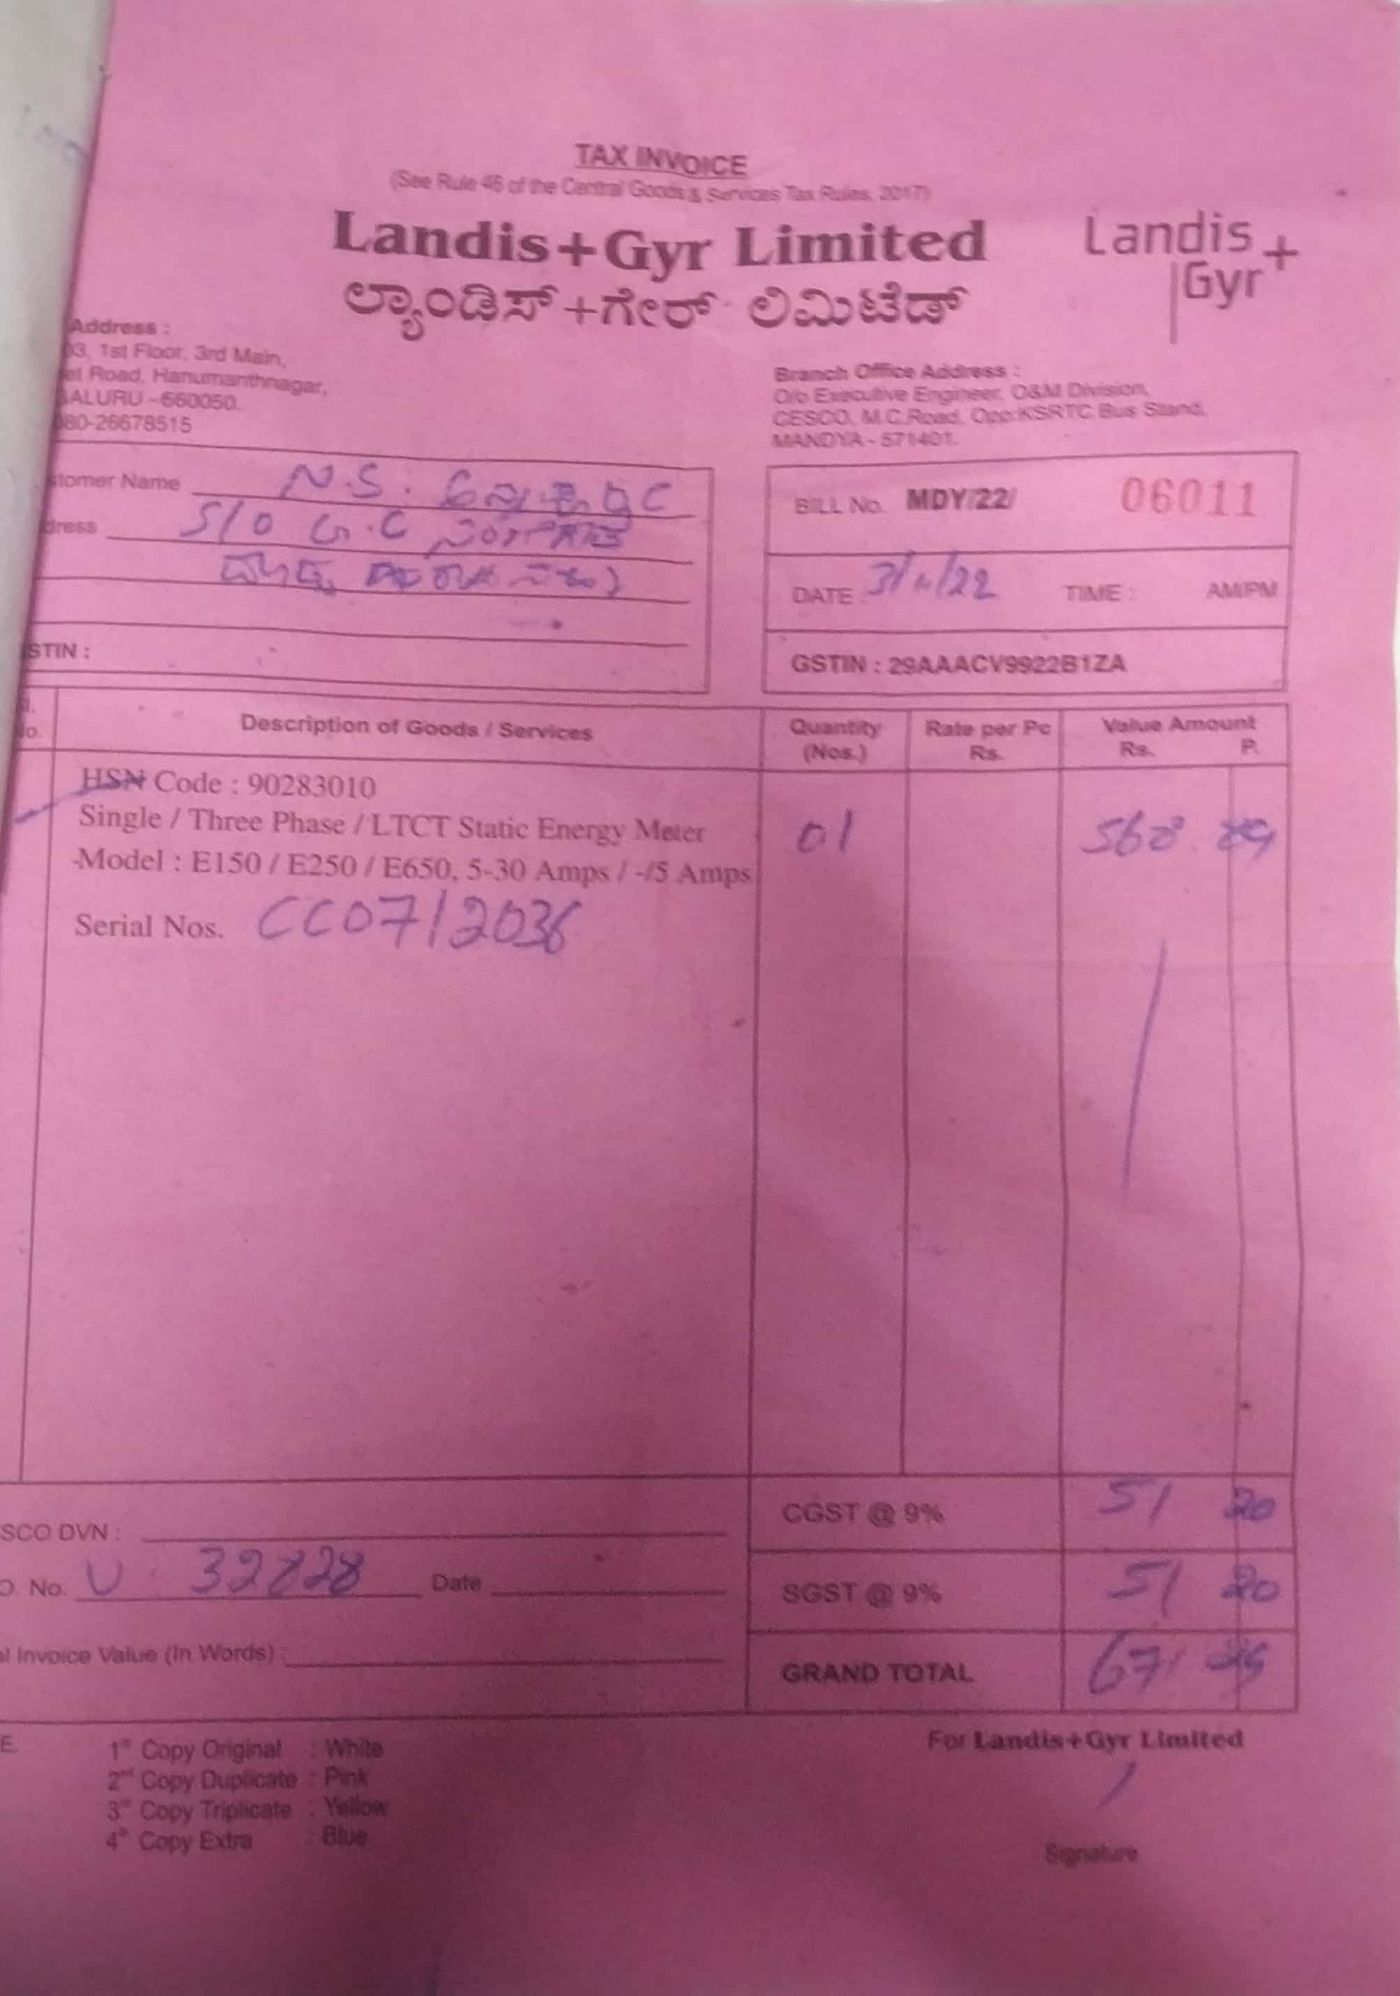 TAX INVOICE
(See Rule 46 of the Central Goods & Services Tax Rules, 2017)
Landis+Gyr Limited
Landis+
Gyr
ಲ್ಯಾಂಡಿಸ್+ಗೇರ್ ಲಿಮಿಟೆಡ್
Address :
03, 1st Floor, 3rd Main,
et Road, Hanumanthnagar,
ALURU - 560050.
080-26678515
Branch Office Address :
O/o Executive Engineer, O&M Division,
CESCO, M.C.Road, Opp:KSRTC Bus Stand,
MANDYA - 571401.
stomer Name N.S.
dress S/O
STIN :
BILL No. MDY/22/ 06011
DATE TIME : AM/PM
GSTIN : 29AAACV9922B1ZA
o. Description of Goods / Services Quantity (Nos.) Rate per Pc Rs. Value Amount Rs. P.
HSN Code : 90283010
Single / Three Phase / LTCT Static Energy Meter 01 568
Model : E150 / E250 / E650, 5-30 Amps / -/5 Amps
Serial Nos. CC0712036
SCO DVN : CGST @ 9% 51 20
O. No. U 32828 Date SGST @ 9% 51 20
al Invoice Value (In Words) : GRAND TOTAL 671
E. 1st Copy Original : White
2nd Copy Duplicate : Pink
3rd Copy Triplicate : Yellow
4th Copy Extra : Blue
For Landis+Gyr Limited
Signature